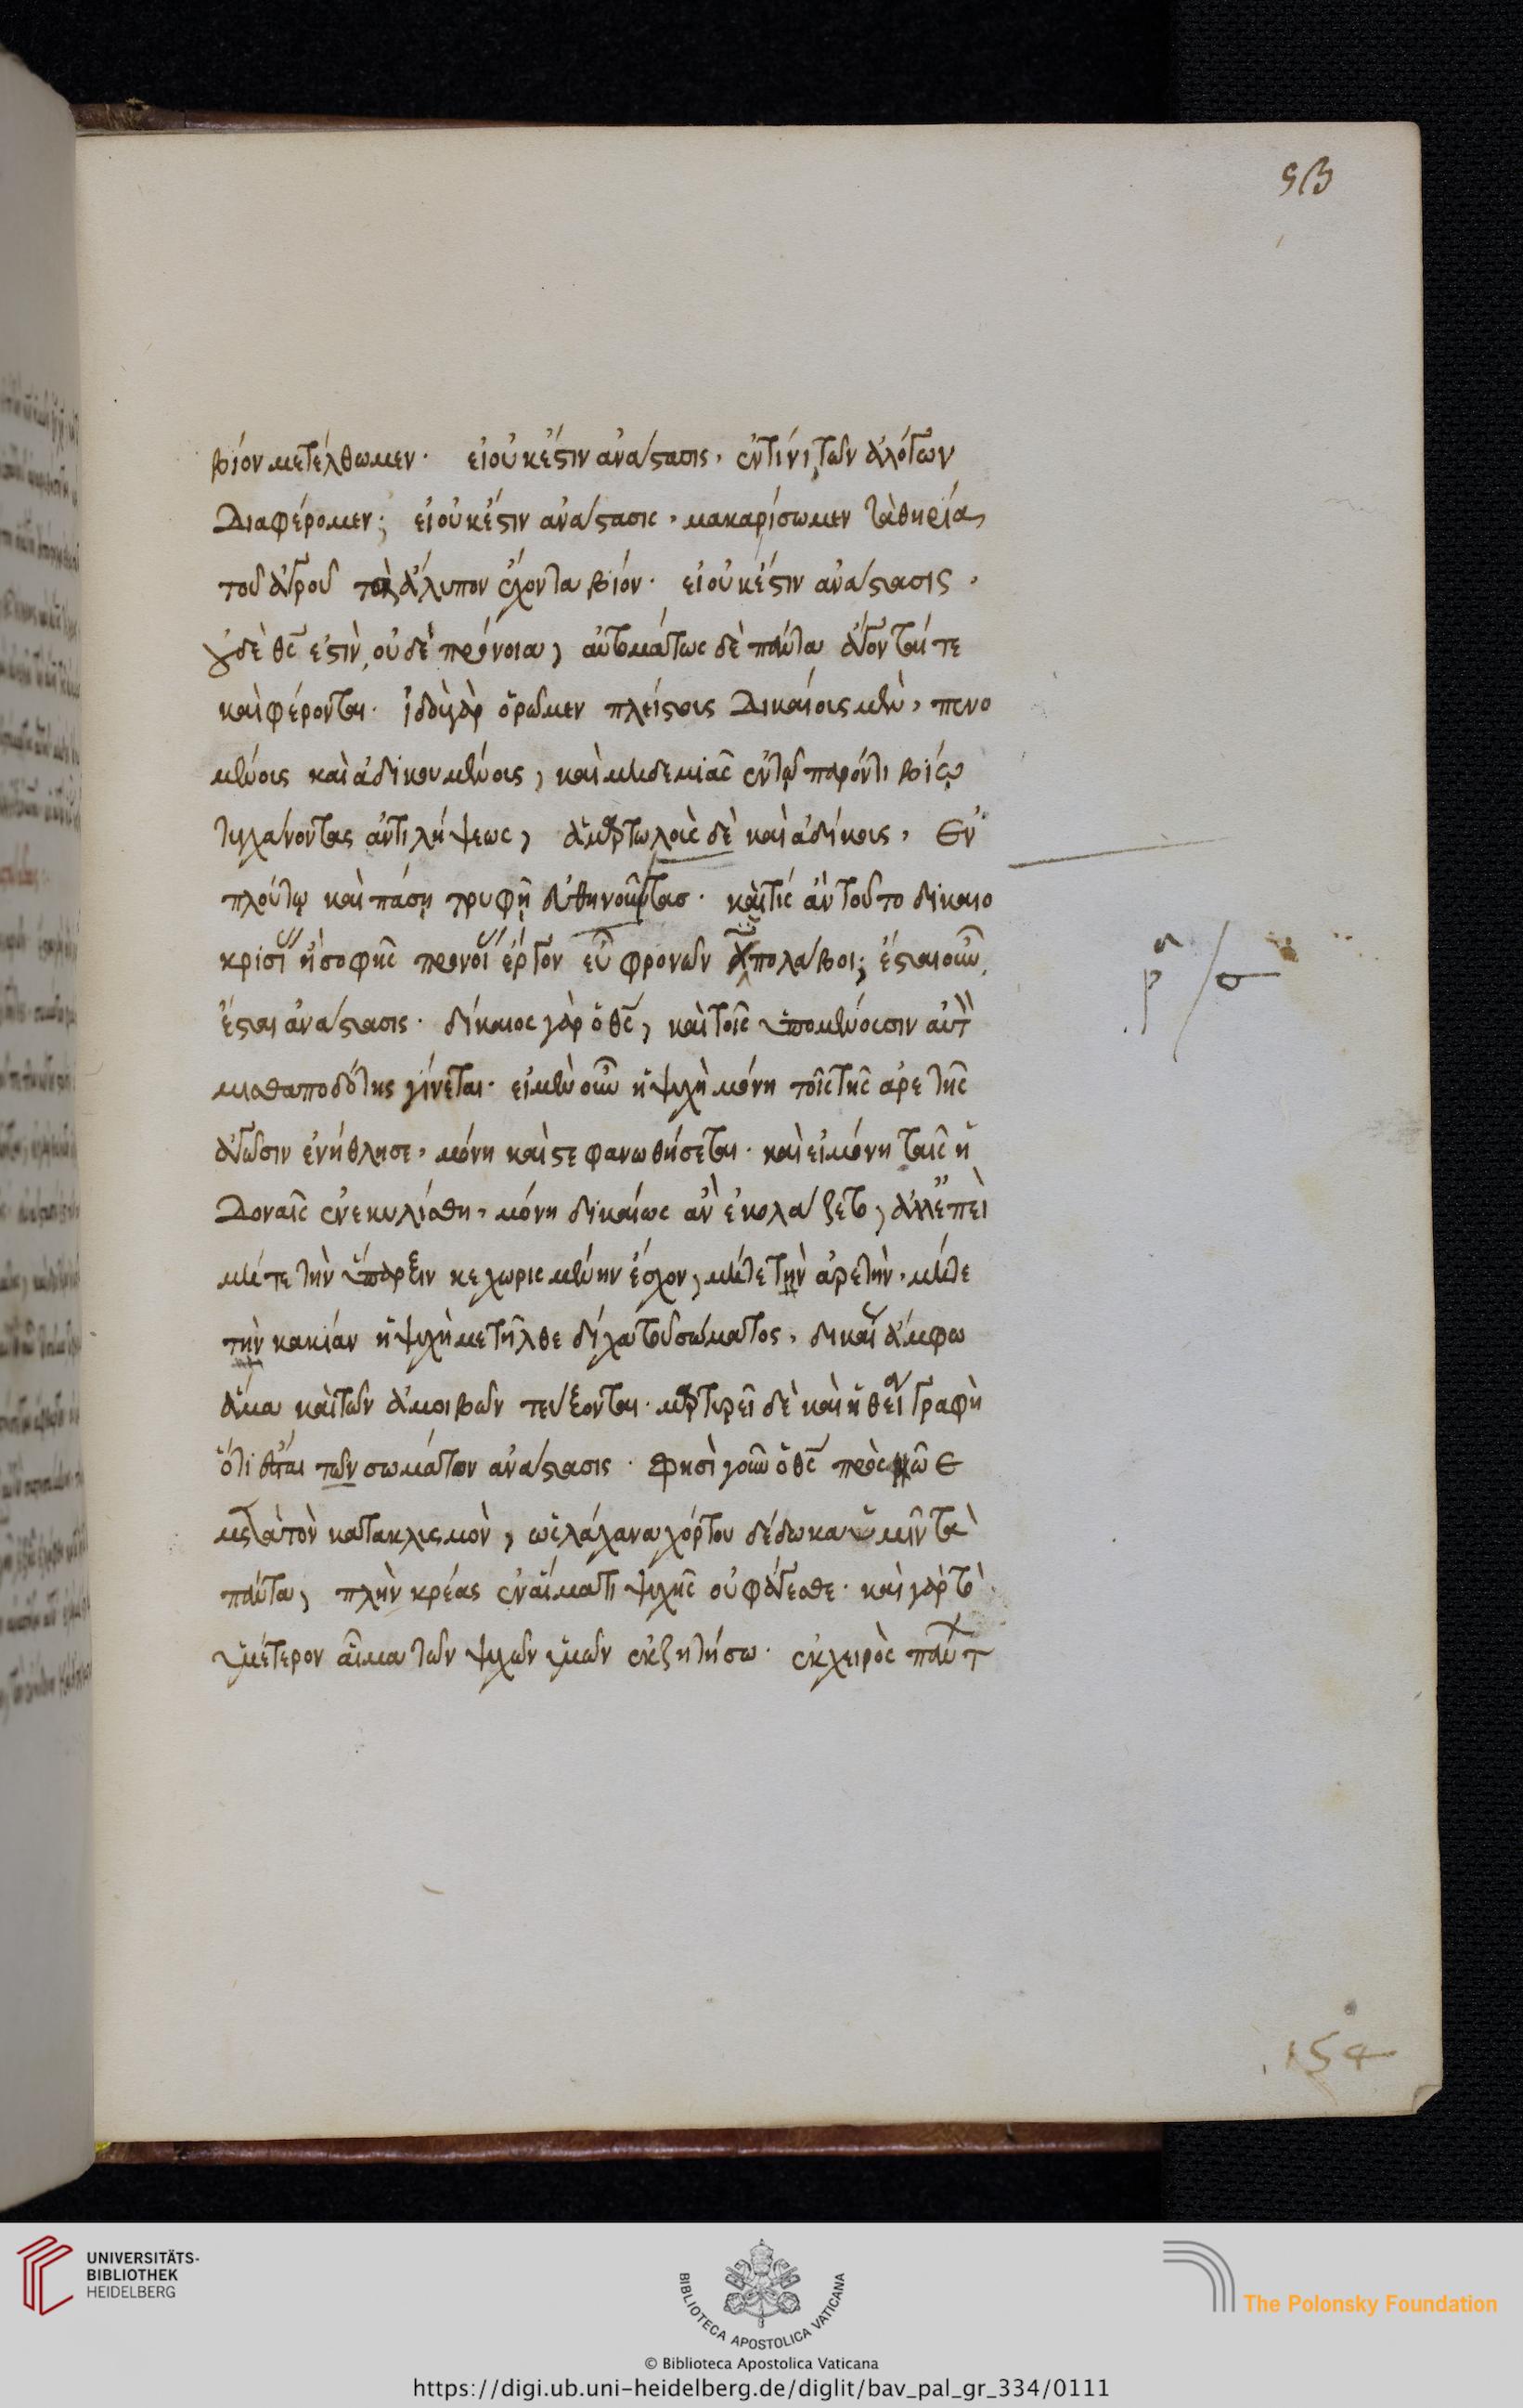 ϟβ
βίον μετέλθωμεν· εἰ οὐκ ἔστιν ἀνάστασις, ἐν τίνι τῶν ἀλόγων
διαφέρομεν; εἰ οὐκ ἔστιν ἀνάστασις, μακαρίσωμεν τὰ θηρία
τοῦ ἀγροῦ τὸν ἄλυπον ἔχοντα βίον· εἰ οὐκ ἔστιν ἀνάστασις,
οὐδὲ θς ἔστιν, οὐδὲ πρόνοια, αὐτομάτως δὲ πάντα ἄγονταί τε
καὶ φέρονται· ἰδοὺ γὰρ ὁρῶμεν πλείστοις δικαίοις μὲν, πενο
μένοις καὶ ἀδικουμένοις, καὶ μηδεμιᾶς ἐν τῷ παρόντι βίῳ
τυγχάνοντας ἀντιλήψεως, ἁμαρτωλοὶς δὲ καὶ ἀδίκοις, ἐν
πλούτῳ καὶ πάσῃ τρυφῇ εὐθηνοῦντας· καὶ τίς ἂν τοῦτο δικαιο
κρισί ἢ σοφῆς προνοί ἔργον εὖ φρονῶν ὑπολάβοι; ἔσται οὖν,
ἔσται ἀνάστασις· δίκαιος γὰρ ὁ θς, καὶ τοῖς ὑπομένουσιν αὐτ
μισθαποδότης γίνεται· εἰ μὲν οὖν ἡ ψυχὴ μόνη τοῖς τῆς ἀρετῆς
ἀγῶσιν ἐνήθλησε, μόνη καὶ στεφανωθήσεται· καὶ εἰ μόνη ταῖς ἡ
δοναῖς ἐνεκυλίσθη, μόνη δικαίως ἂν ἐκολάζετο, ἀλλ' ἐπεὶ
μήτε τὴν ὕπαρξιν κεχωρισμένην ἔσχον, μήτε τὴν ἀρετὴν, μήτε
τὴν κακίαν ἡ ψυχὴ μετῆλθε δίχα τοῦ σώματος, δικαί ἄμφω
ἅμα καὶ τῶν ἀμοιβῶν τεύξονται· μαρτυρεῖ δὲ καὶ ἡ θεί γραφὴ
ὅτι ἔσται τῶν σωμάτων ἀνάστασις· φησὶ γοῦν ὁ θς πρὸς νῶε
μετὰ τὸν κατακλισμὸν, ὡς λάχανα χόρτου δέδωκα ὑμῖν τὰ
πάντα, πλὴν κρέας ἐν αἵματι ψυχῆς οὐ φάγεσθε· καὶ γὰρ τὸ
ὑμέτερον αἷμα τῶν ψυχῶν ὑμῶν ἐκζητήσω· ἐκ χειρὸς πάντ
154
UNIVERSITÄTS-
BIBLIOTHEK
HEIDELBERG
BIBLIOTECA APOSTOLICA VATICANA
The Polonsky Foundation
© Biblioteca Apostolica Vaticana
https://digi.ub.uni-heidelberg.de/diglit/bav_pal_gr_334/0111